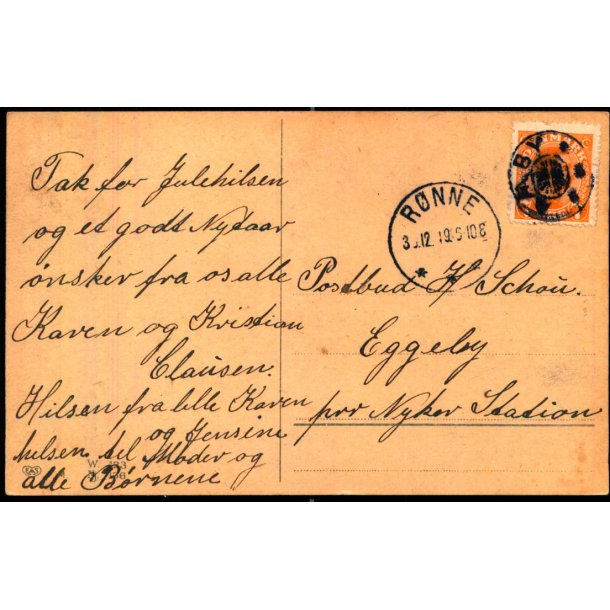 Tak for Julehilsen
og et godt Nytaar
ønsker fra os alle
Karen og Kristian
Clausen.
Hilsen fra lille Karen
og Jensine
hilsen til Moder og
alle Børnene
EAS
DANMARK
RØNNE
12.19 5 108
Postbud H Schou.
Eggeby
prr Nyker Station